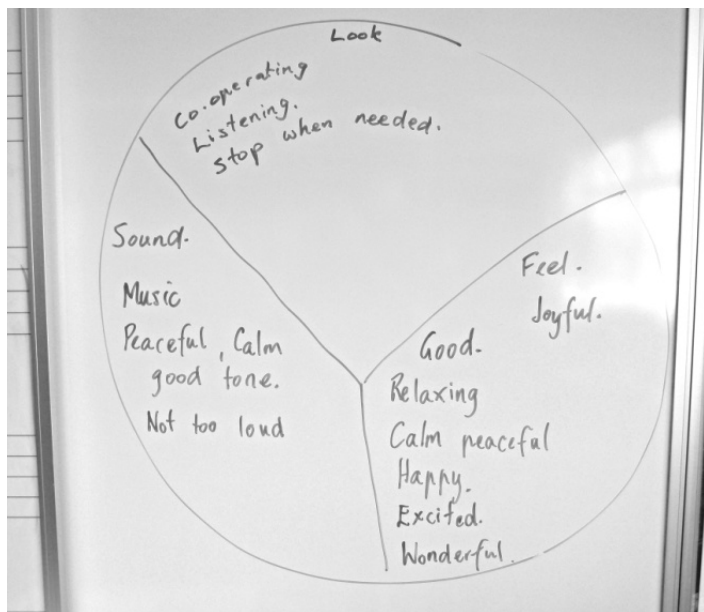 Look
Co-operating
Listening.
Stop when needed.
Sound.
Music
Peaceful, Calm
good tone.
Not too loud
Feel.
Joyful.
Good.
Relaxing
Calm peaceful
Happy.
Excited.
Wonderful.